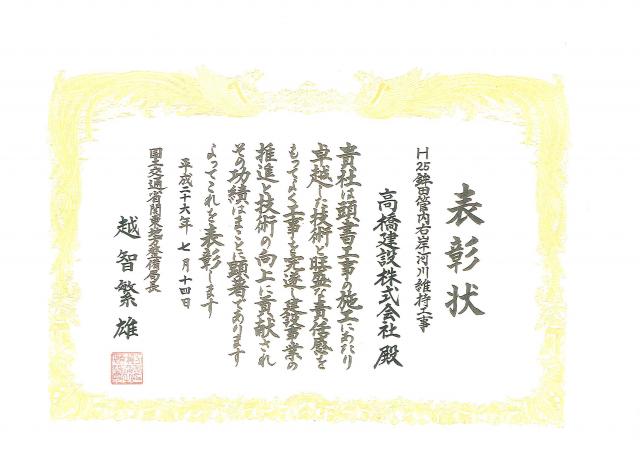 表彰状
H25鉾田管内右岸河川維持工事
高橋建設株式会社 殿
貴社は頭書工事の施工にあたり
卓越した技術と旺盛な責任感を
もってよく工事を完遂し建設事業の
推進と技術の向上に貢献され
その功績はまことに顕著であります
よってこれを表彰します
平成二十六年 七月十四日
国土交通省関東地方整備局長
越智繁雄